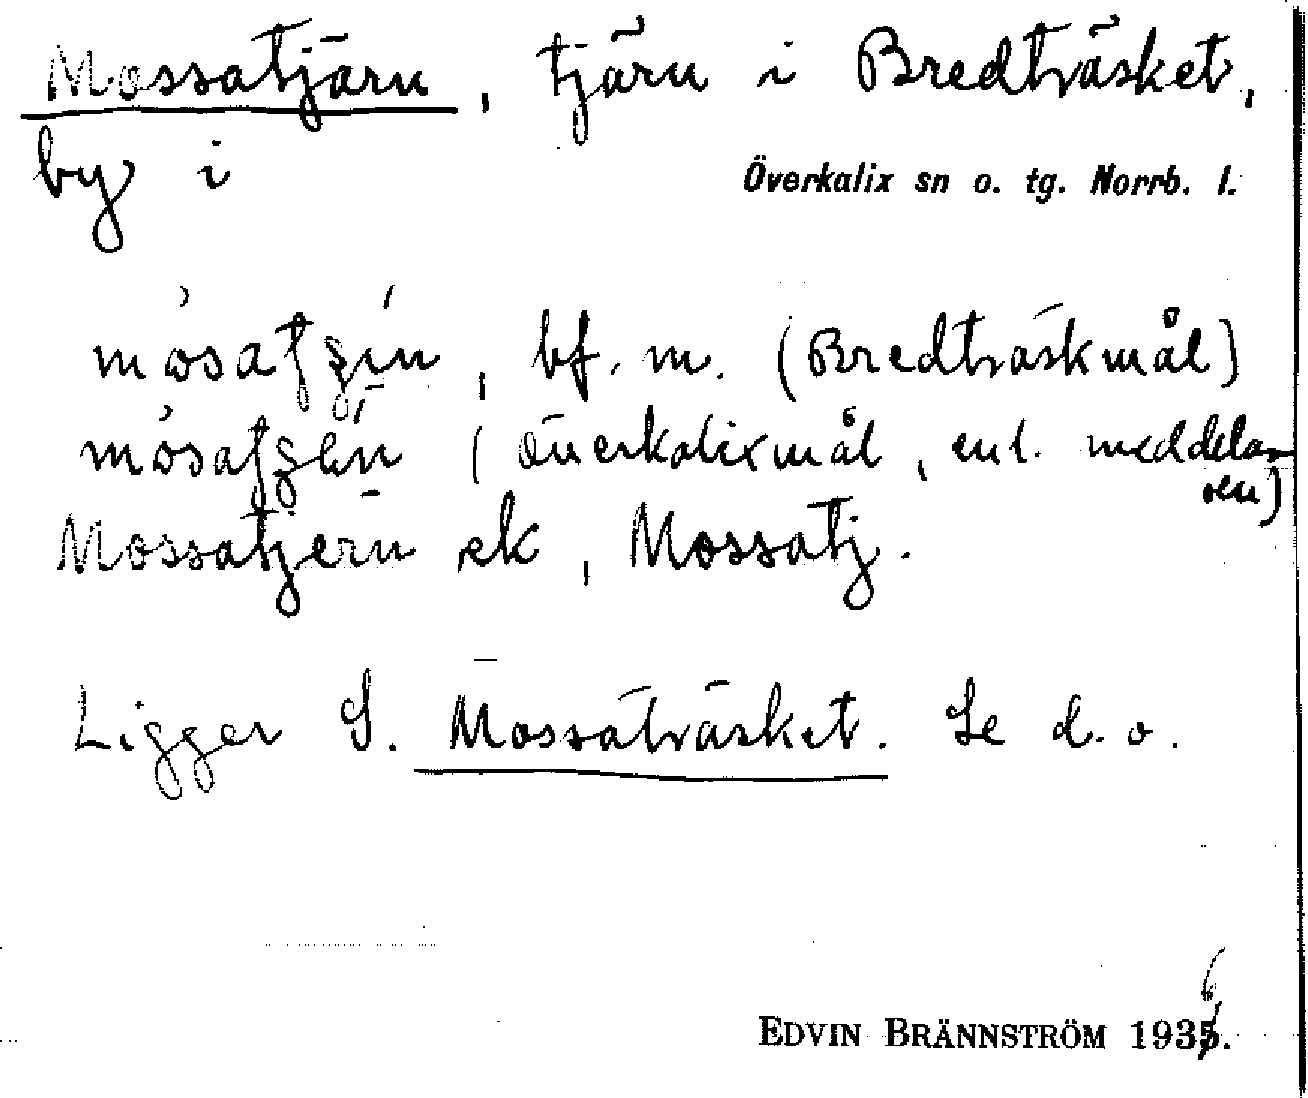 Mossatjärn, tjärn i Bredträsket,
by i
Överkalix sn o. tg. Norrb. l.
bf. m. (Bredträskmål)
(Överkalixmål, enl. meddelaren)
Mossatjern ek, Mossatj.
Ligger S. Mossaträsket. Se d. o.
EDVIN BRÄNNSTRÖM 1936.